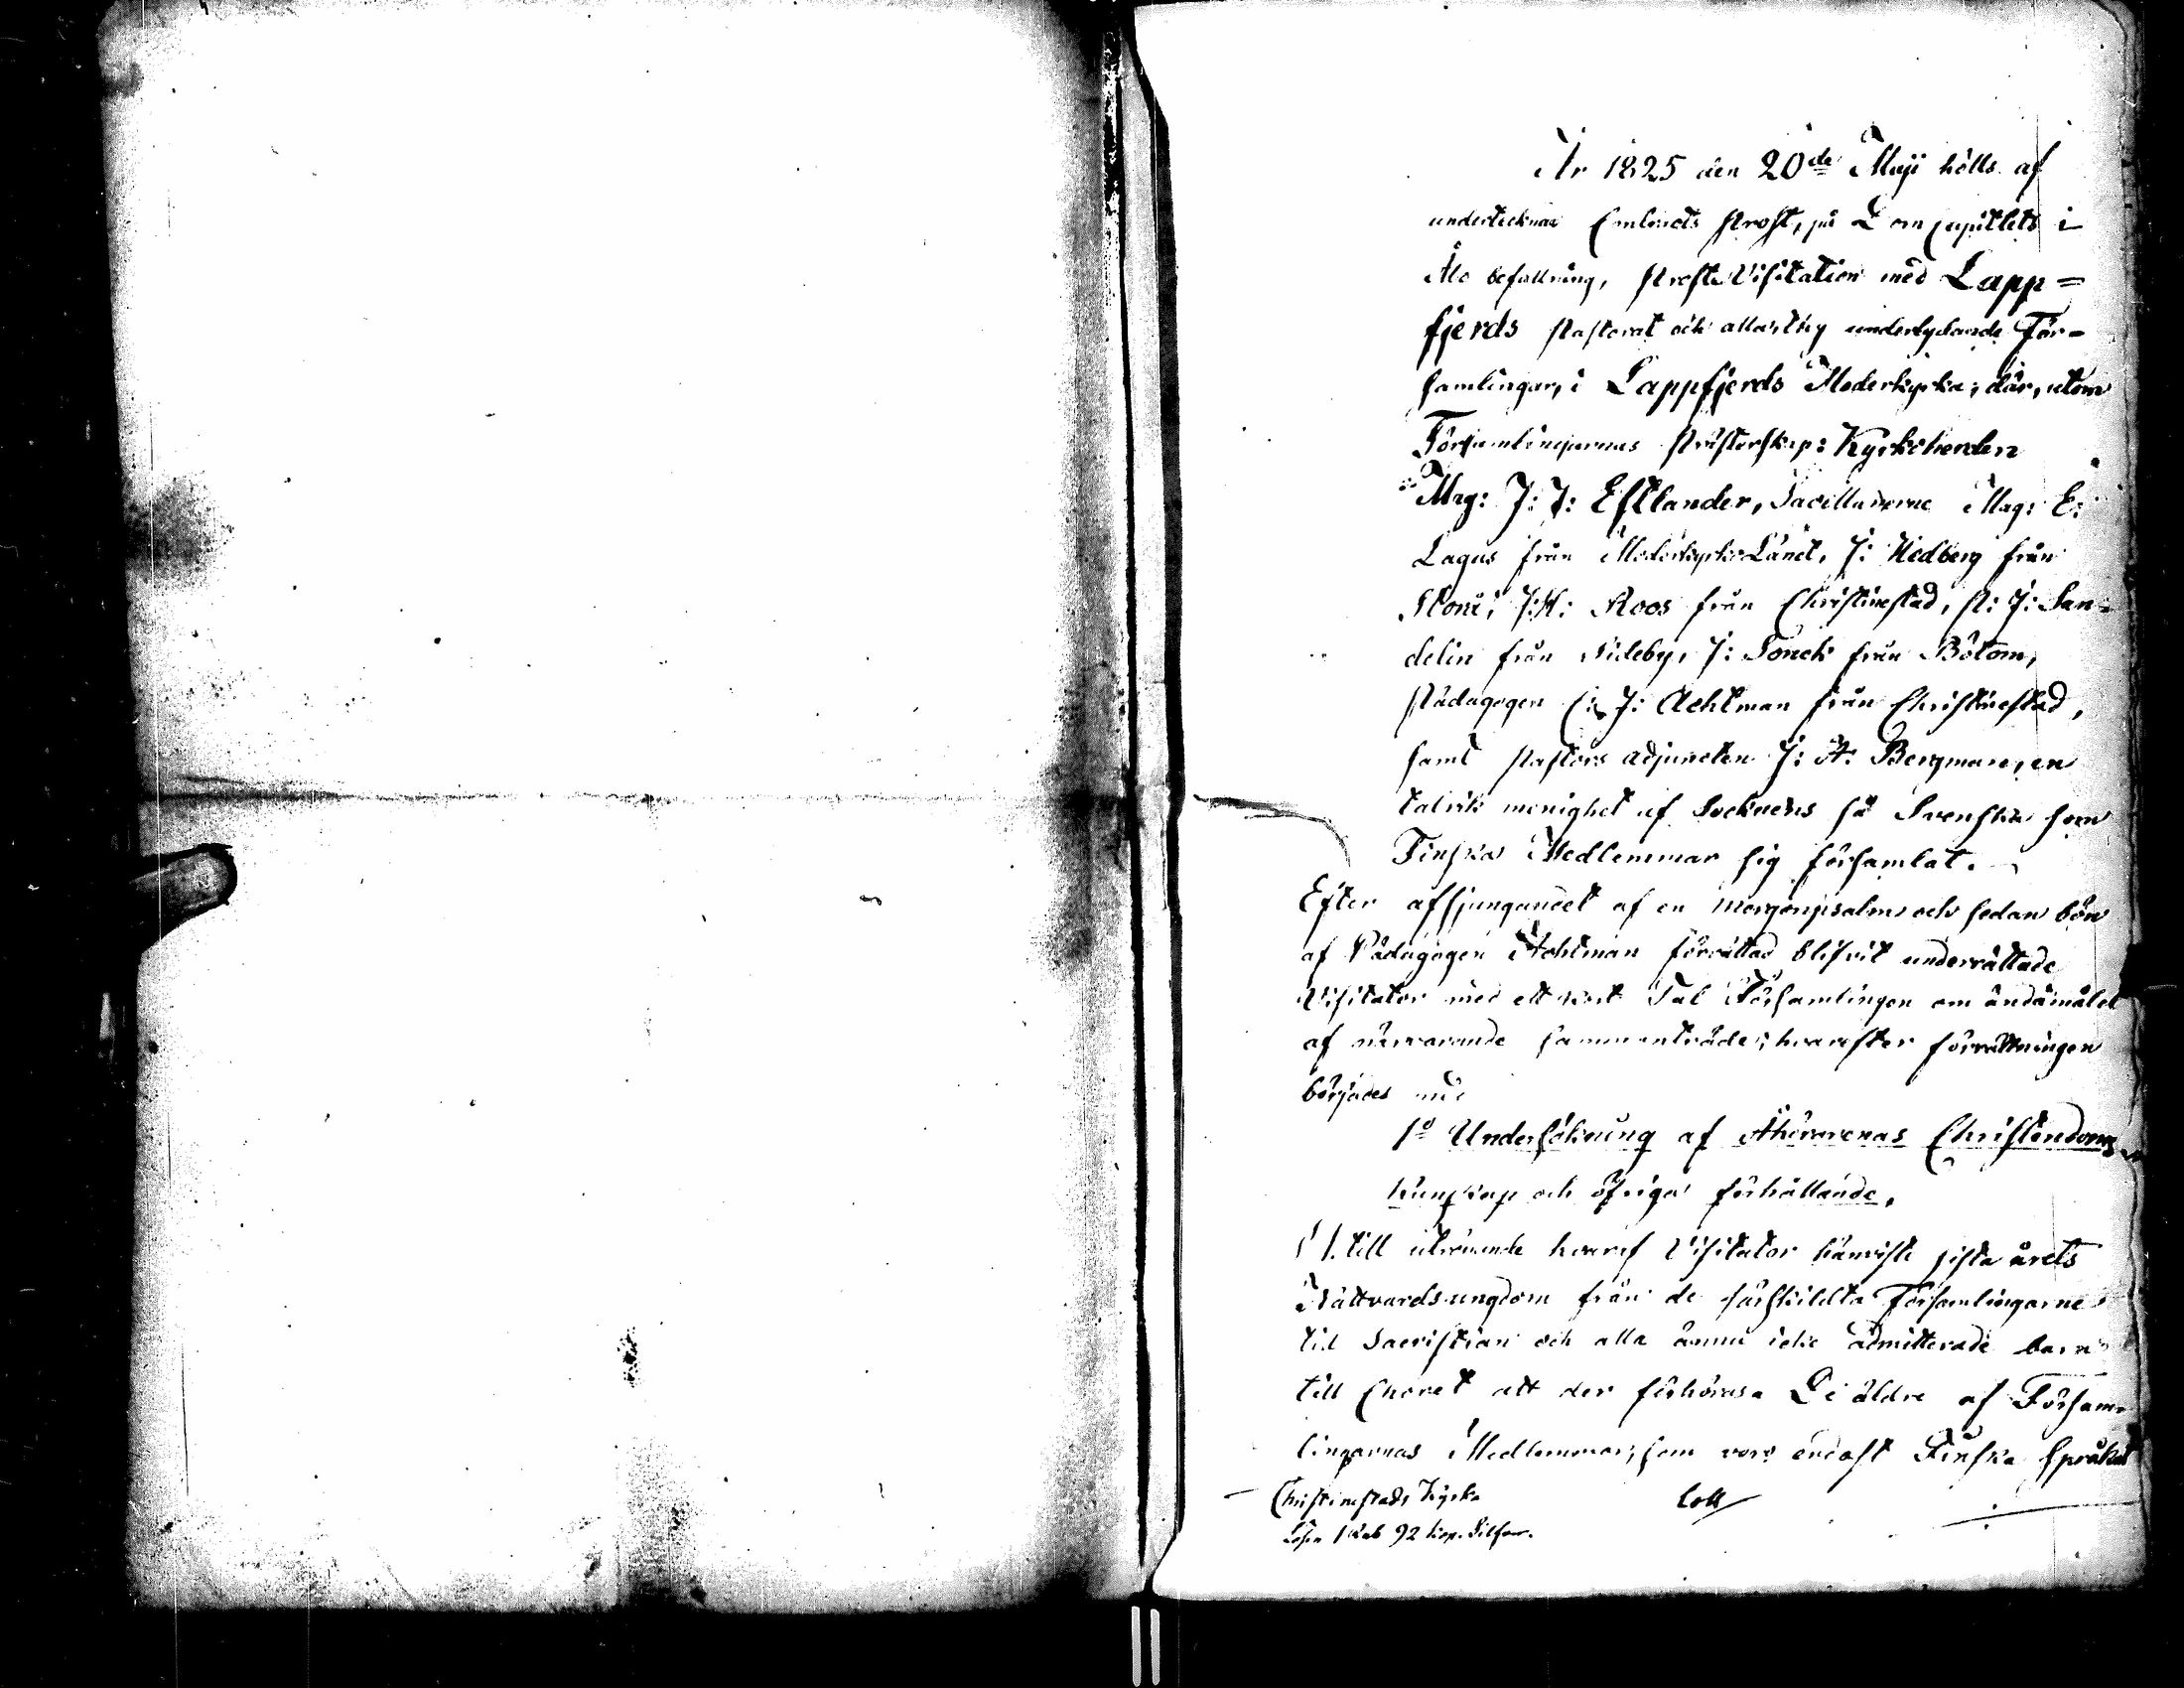 År 1825 den 20de Maji hölls af
undertecknad Contracts Prost, på Dom Capitlets i
Åbo befallning, Prosts Visitation med Lapp=
fjerds Pastorat och allas thy underlydande För=
samlingar, i Lappfjerds Moderkyrka; där, utom
Församlingarnas Prästerskap: Kyrkoherden
Mag: J: J: Estlander, Sacellanerne Mag: E:
Lagus från Moderkyrko Länet, J: Hedberg från
J:H: Roos från Christinestad, P: J: San=
delin från Sideby, J: Sonck från Bötom,
Pädagogen C: J: Achtman från Christinestad,
samt Pastors adjuncten J: A: Bergman, en
talrik menighet af Socknens så Svenska som
Finska Medlemmar sig församlat.
Efter afsjungandet af en morgonpsalm och sedan bön
af Pädagogen Achtman förrättad blifvit underrättade
Visitator med ett kort Tal Församlingen om ändamålet
af närvarande sammanträde; hvarefter förrättningen
börjades med
1o Undersökning af Åhörarenas Christendoms
kunskap och öfriga förhållande.
till utrönande hvaraf Visitator hänviste sista årets
Nattvardsungdom från de särskildta Församlingarne
til Sacristian och alla ännu icke admitterade barn
till Choret att der förhöras. De äldre af Försam=
lingarnas Medlemmar, som voro endast Finska Språket
Christinestads Kyrka
Lösen 1 Rub 92 kop. Silfver.